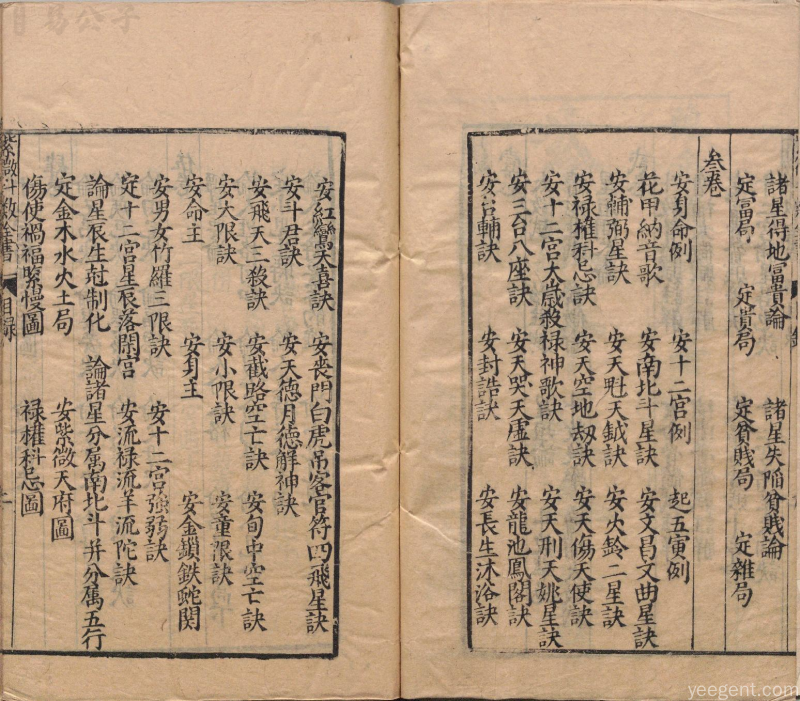 諸星得地富貴論　諸星失陷貧賤論
定富局　定貴局　定貧賤局　定雜局
叁卷
安身命例　安十二宮例　起五寅例
花甲納音歌　安南北斗星訣　安文昌文曲星訣
安輔弼星訣　安天魁天鉞訣　安火鈴二星訣
安祿權科忌訣　安天空地劫訣　安天傷天使訣
安十二宮太歲殺祿神歌訣　安天刑天姚星訣
安三台八座訣　安天哭天虛訣　安龍池鳳閣訣
安台輔訣　安封誥訣　安長生沐浴訣
安紅鸞天喜訣　安喪門白虎吊客官符四飛星訣
安斗君訣　安天德月德解神訣
安飛天三殺訣　安截路空亡訣　安旬中空亡訣
安大限訣　安小限訣　安童限訣
安命主　安身主　安金鎖鉄蛇関
安男女竹羅三限訣　安十二宮強弱訣
定十二宮星辰落閑宮　安流祿流羊流陀訣
論星辰生尅制化　論諸星分属南北斗並分属五行
定金木水火土局　安紫微天府圖
傷使禍福緊慢圖　祿權科忌圖
紫微斗數全書　目録
yeegent.com